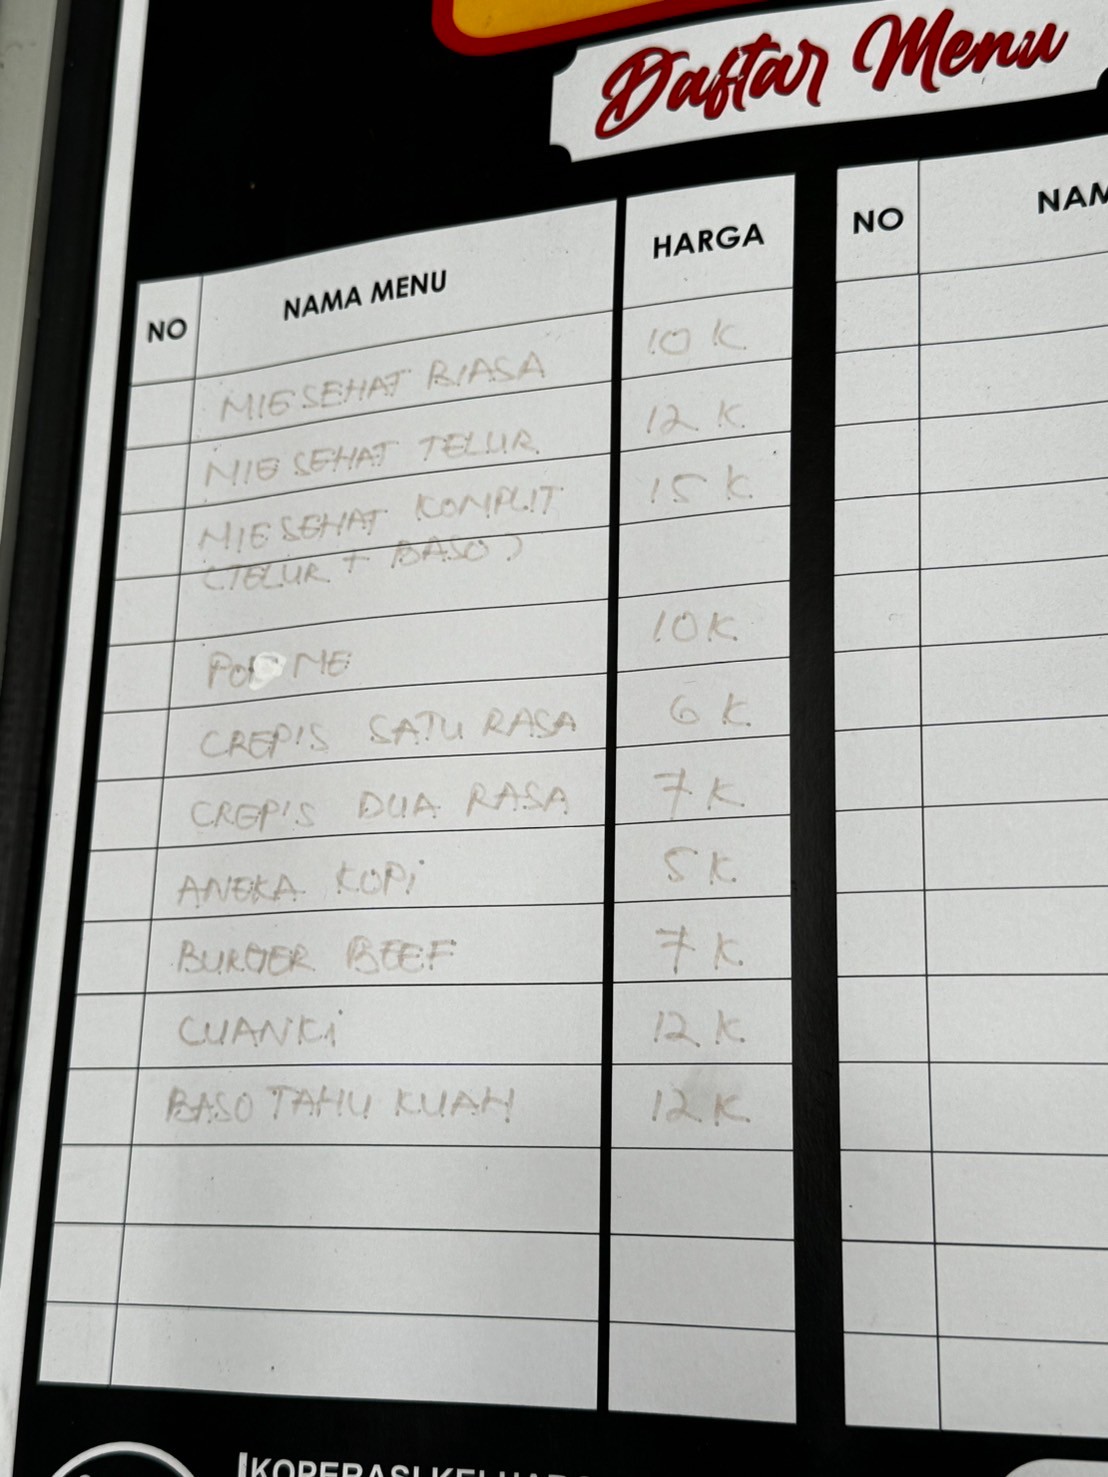 Daftar Menu
NO NAMA MENU HARGA
MIE SEHAT BIASA 10 K
MIE SEHAT TELUR 12 K
MIE SEHAT KOMPLIT 15 K
(TELUR + BASO)
POP MIE 10 K
CREPIS SATU RASA 6 K
CREPIS DUA RASA 7 K
ANEKA KOPI 5 K
BURGER BEEF 7 K
CUANKI 12 K
BASO TAHU KUAH 12 K
NO
KOPERASI